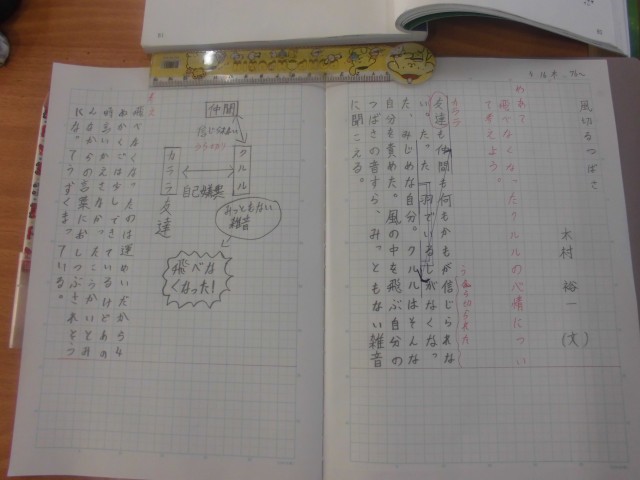 風切るつばさ
木村 裕一 (文)
めあて
飛べなくなったクルルの心情につい
て考えよう。
カララ
友達も仲間も何もかもが信じられな
い。たった一羽でいるしがなくなっ
た、みじめな自分。クルルはそんな
自分を責めた。風の中を飛ぶ自分の
つばさの音すら、みっともない雑音
に聞こえる。
うらぎられた
仲間
信じられない
クルル
カララ
友達
自己嫌悪
みっともない
雑音
飛べな
くなった!
考え
飛べなくなったのは運めいだから4
わかくごは少しできているけどあの
時言いかえさなかったこうかいとみ
んなからの言葉におしつぶされそう
になってうずくまっている。